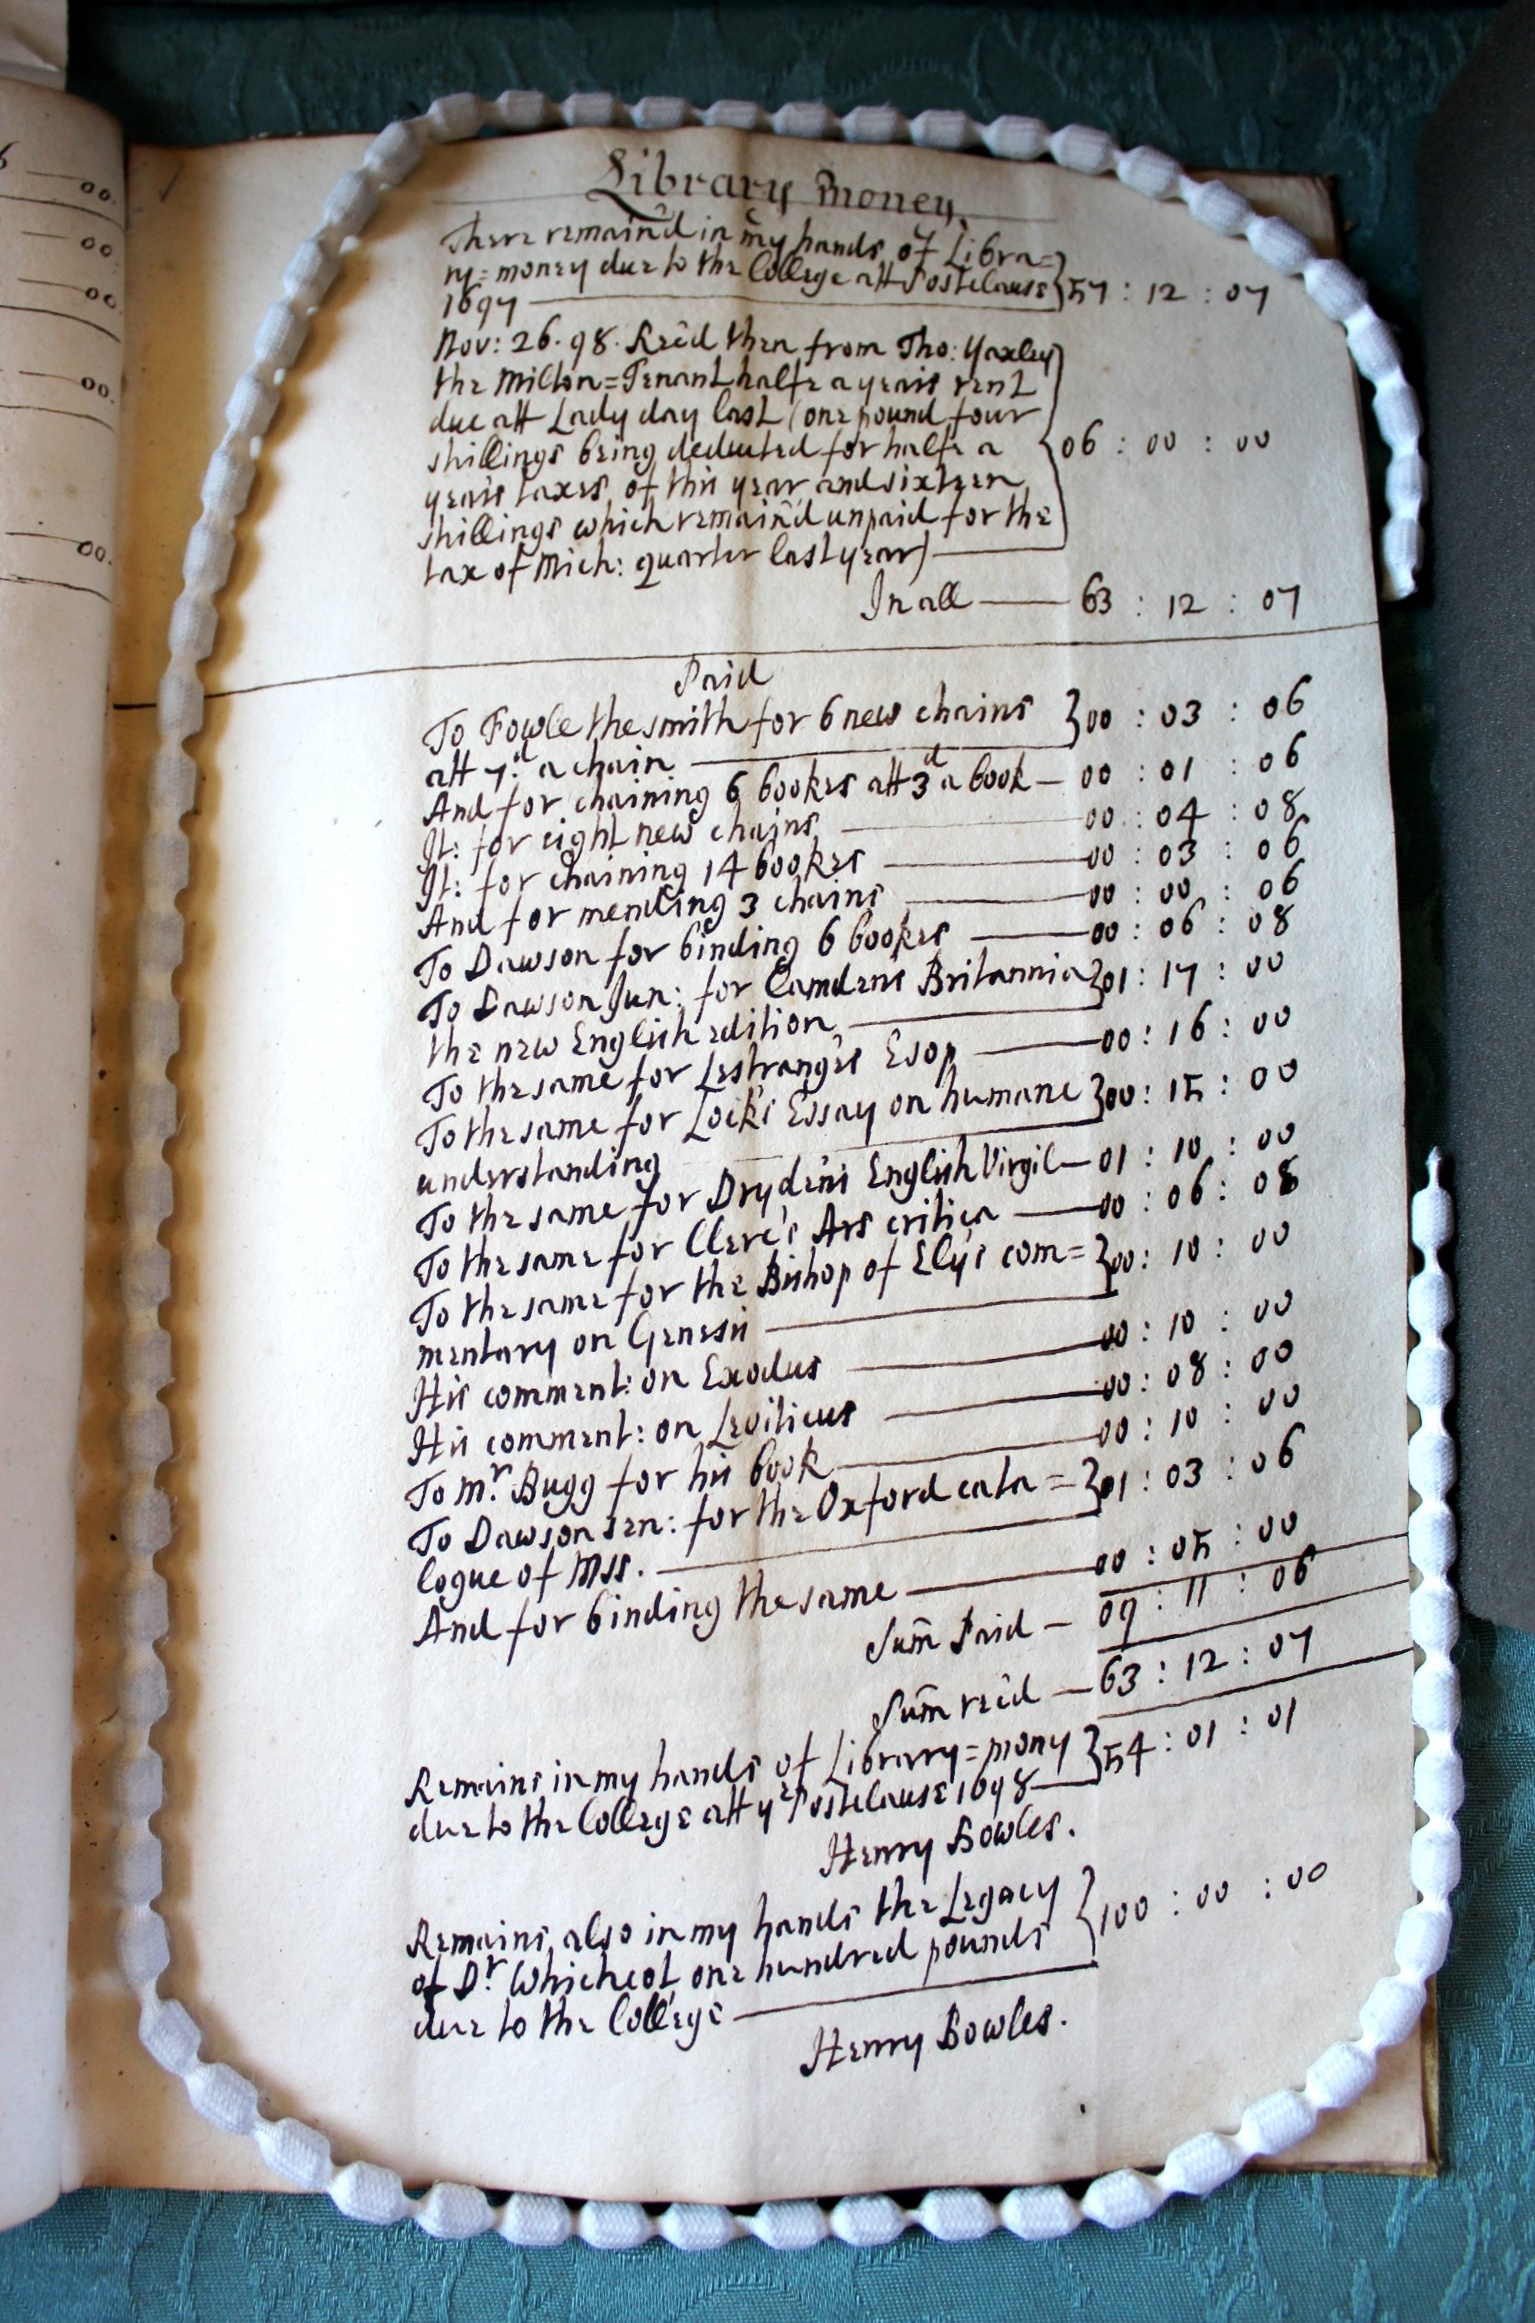 6 — 00.
— 00
— 00
— 00
— 00.
Library money.
There remain'd in my hands of Libra=
ry=money due to the College att Postclause } 57 : 12 : 07
1697
Nov: 26. 98. Rec̄d then from Tho: Yaxley
the Milton=Tenant halfe a year's rent
due att Lady day last (one pound four
shillings being deducted for halfe a } 06 : 00 : 00
year's taxes of this year and sixteen
shillings which remain'd unpaid for the
tax of Mich: quarter last year)
In all — 63 : 12 : 07
Paid
To Fowle the smith for 6 new chains } 00 : 03 : 06
att 7.d a chain
And for chaining 6 bookes att 3d a book — 00 : 01 : 06
It: for eight new chains — 00 : 04 : 08
It: for chaining 14 bookes — 00 : 03 : 06
And for mending 3 chains — 00 : 00 : 06
To Dawson for binding 6 bookes — 00 : 06 : 08
To Dawson Jun: for Camdens Britannia } 01 : 17 : 00
the new English edition
To the same for Lestrange's Esop — 00 : 16 : 00
To the same for Lock's Essay on humane } 00 : 15 : 00
understanding
To the same for Dryden's English Virgil — 01 : 10 : 00
To the same for Clerc's Ars critica — 00 : 06 : 08
To the same for the Bishop of Ely's com= } 00 : 10 : 00
mentary on Genesis
His comment: on Exodus — 00 : 10 : 00
His comment: on Leviticus — 00 : 08 : 00
To Mr. Bugg for his book — 00 : 10 : 00
To Dawson sen: for the Oxford cata= } 01 : 03 : 06
logue of Mss.
And for binding the same — 00 : 05 : 00
Sum̄ Paid — 09 : 11 : 06
Sum̄ rec̄d — 63 : 12 : 07
Remains in my hands of Library=mony } 54 : 01 : 01
due to the College att ye Postclause 1698
Henry Bowles.
Remains also in my hands the Legacy
of Dr Whichcot one hundred pounds } 100 : 00 : 00
due to the College
Henry Bowles.